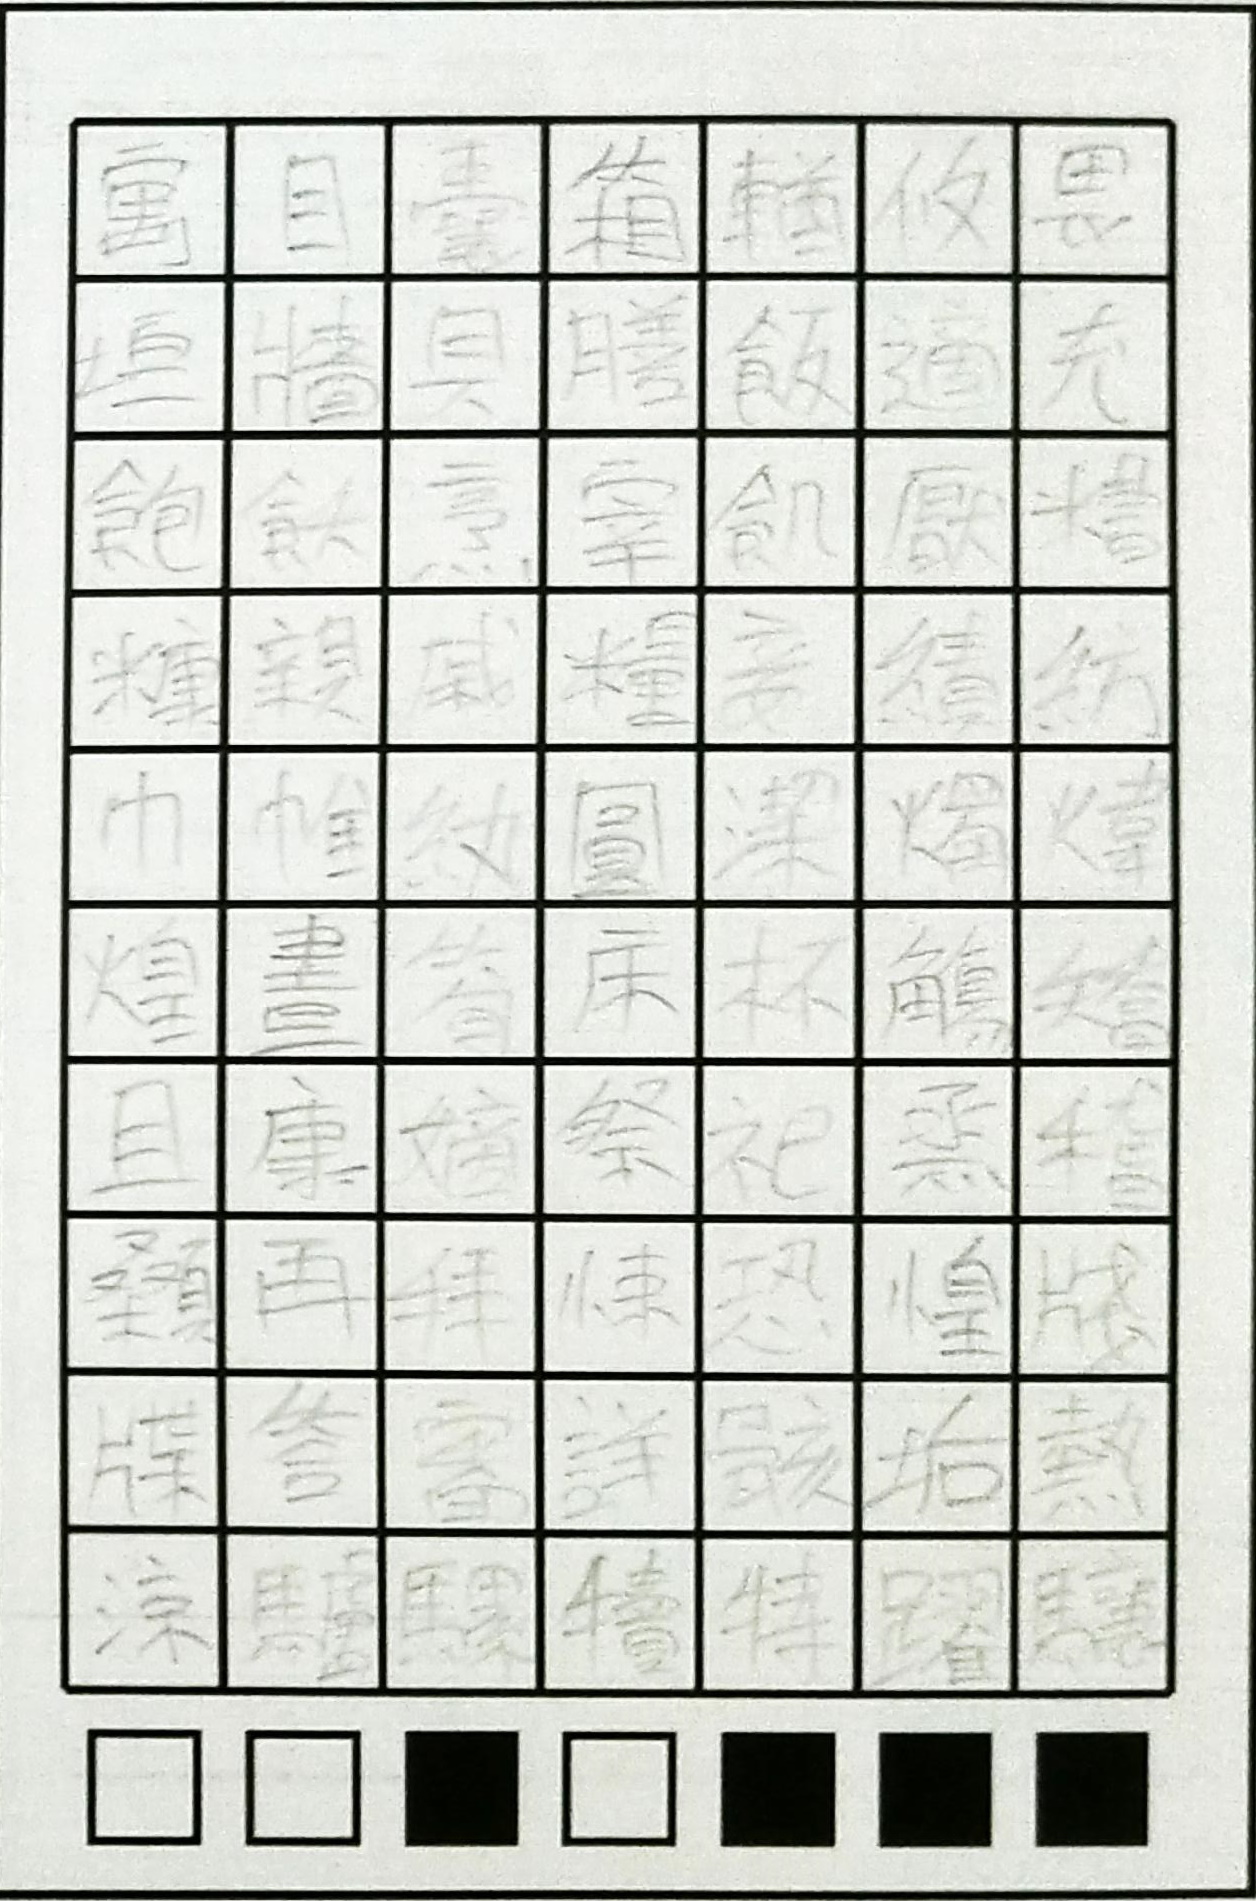 寓目囊箱輶攸畏
垣牆具膳飯適充
飽飫烹宰飢厭糟
糠親戚糧妾績紡
巾帷紈圓潔燭煒
煌晝眠床杯觴矯
且康嫡祭祀烝稽
顙再拜悚恐惶牋
牒答審詳骸垢熱
涼驢騾犢特躍驤